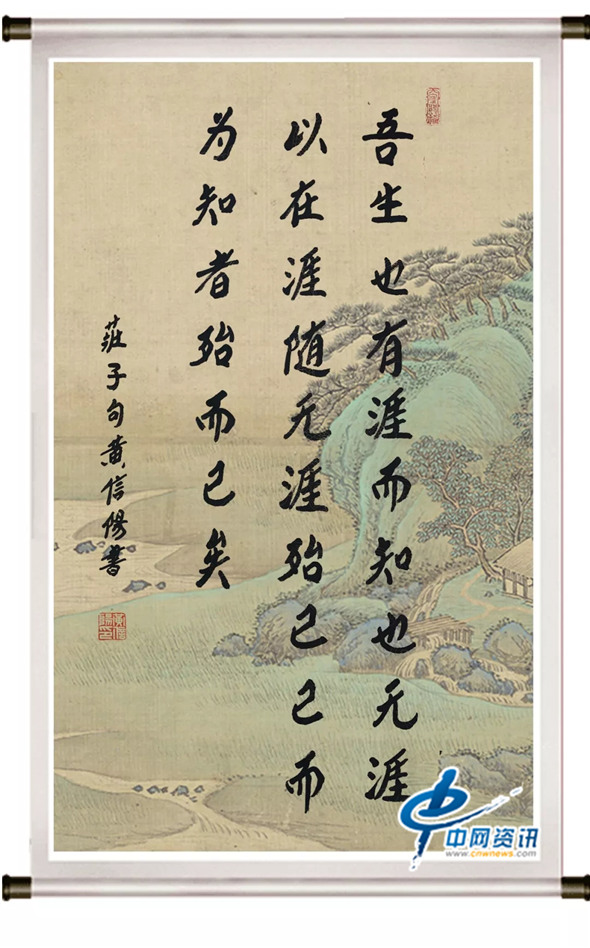 吾生也有涯而知也无涯
以在涯随无涯殆已已而
为知者殆而已矣
莊子句黄信陽書
中网资讯
www.cnwnews.com